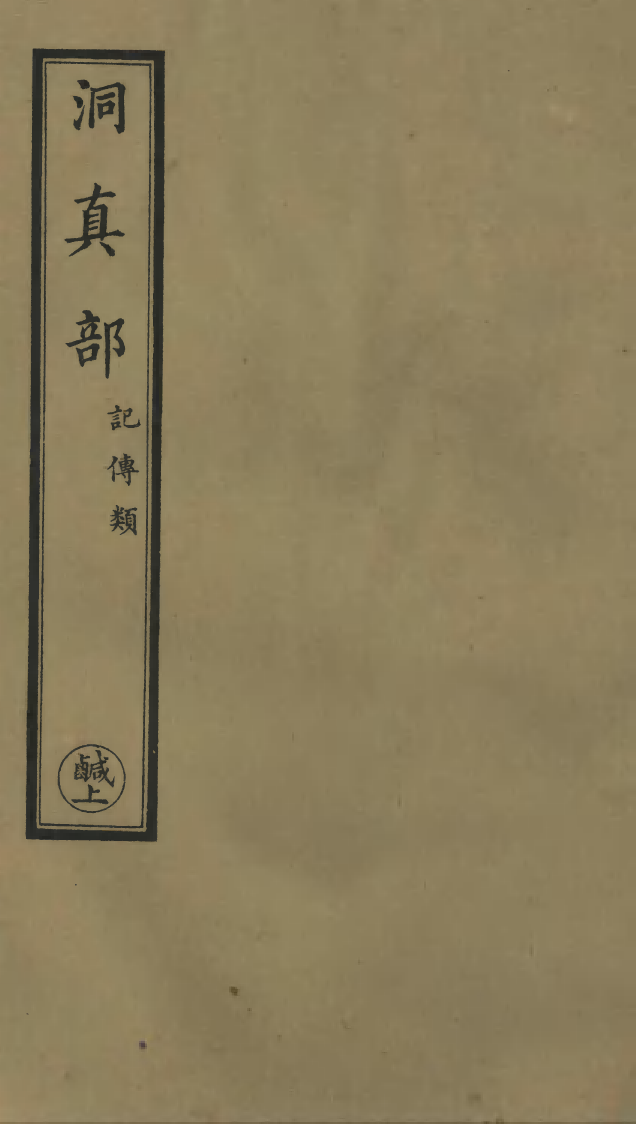 洞真部
記傳類
鹹上